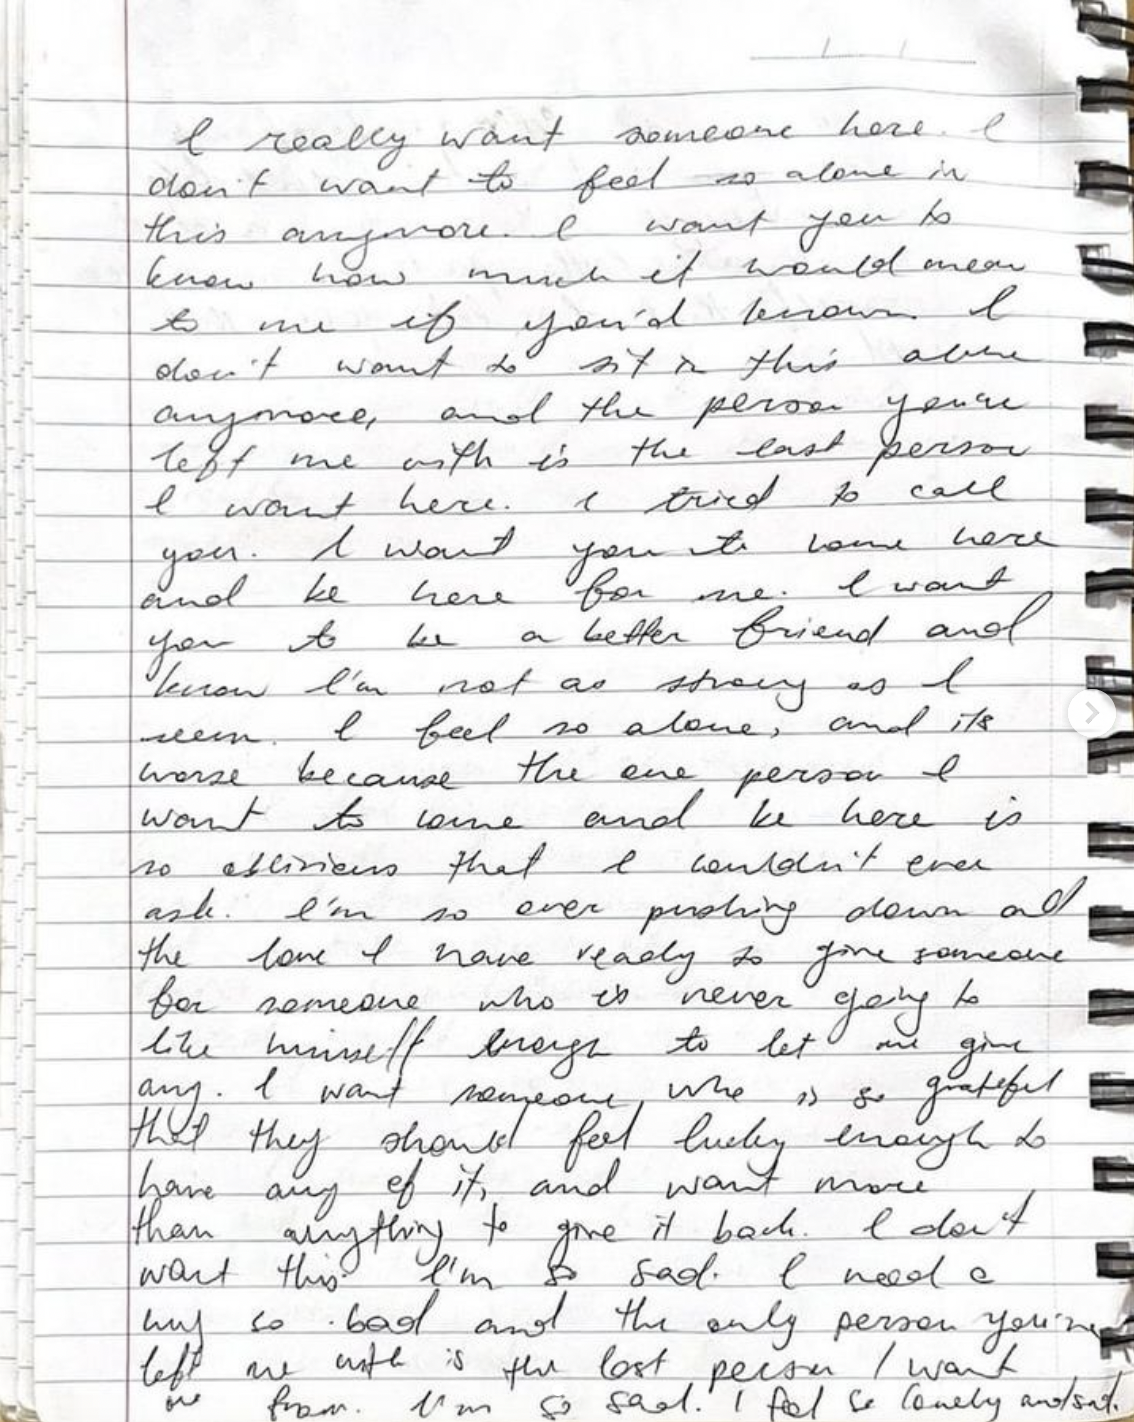 I really want someone here. I
don't want to feel so alone in
this anymore. I want you to
know how much it would mean
to me if you'd known. I
don't want to sit in this alone
anymore, and the person you've
left me with is the last person
I want here. I tried to call
you. I want you to come here
and be here for me. I want
you to be a better friend and
know I'm not as strong as I
seem. I feel so alone, and its
worse because the one person I
want to come and be here is
so oblivious that I couldn't ever
ask. I'm so over pushing down all
the love I have ready to give someone
for someone who is never going to
like himself enough to let me give
any. I want someone who is so grateful
that they should feel lucky enough to
have any of it, and want more
than anything to give it back. I don't
want this. I'm so sad. I need a
hug so bad and the only person you've
left me with is the last person I want
one from. I'm so sad. I feel so lonely and sad.